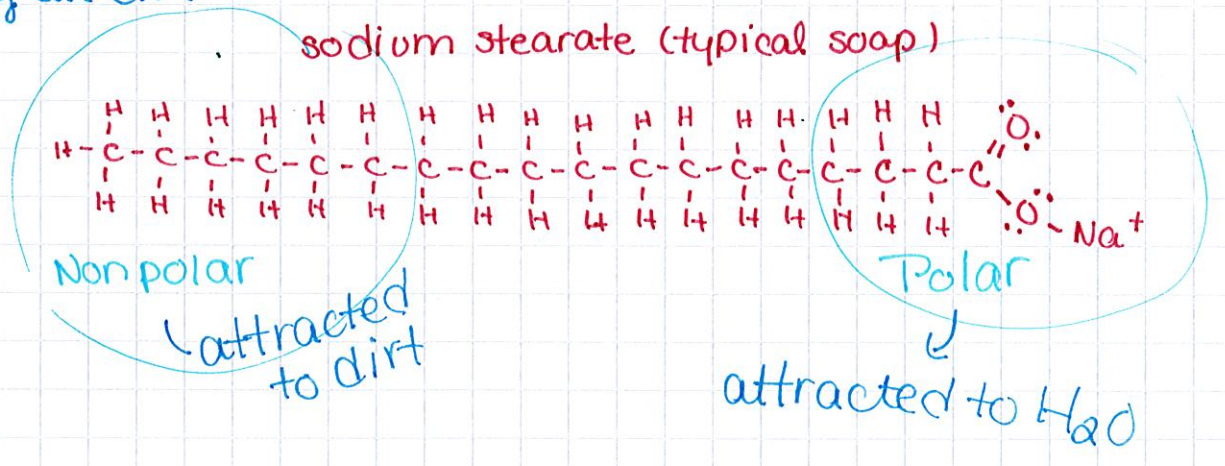 sodium stearate (typical soap)
H H H H H H H H H H H H H H H H H
H-C-C-C-C-C-C-C-C-C-C-C-C-C-C-C-C-C-C
O
H H H H H H H H H H H H H H H H H
O - Na+
Nonpolar
Polar
attracted
to dirt
attracted to H2O